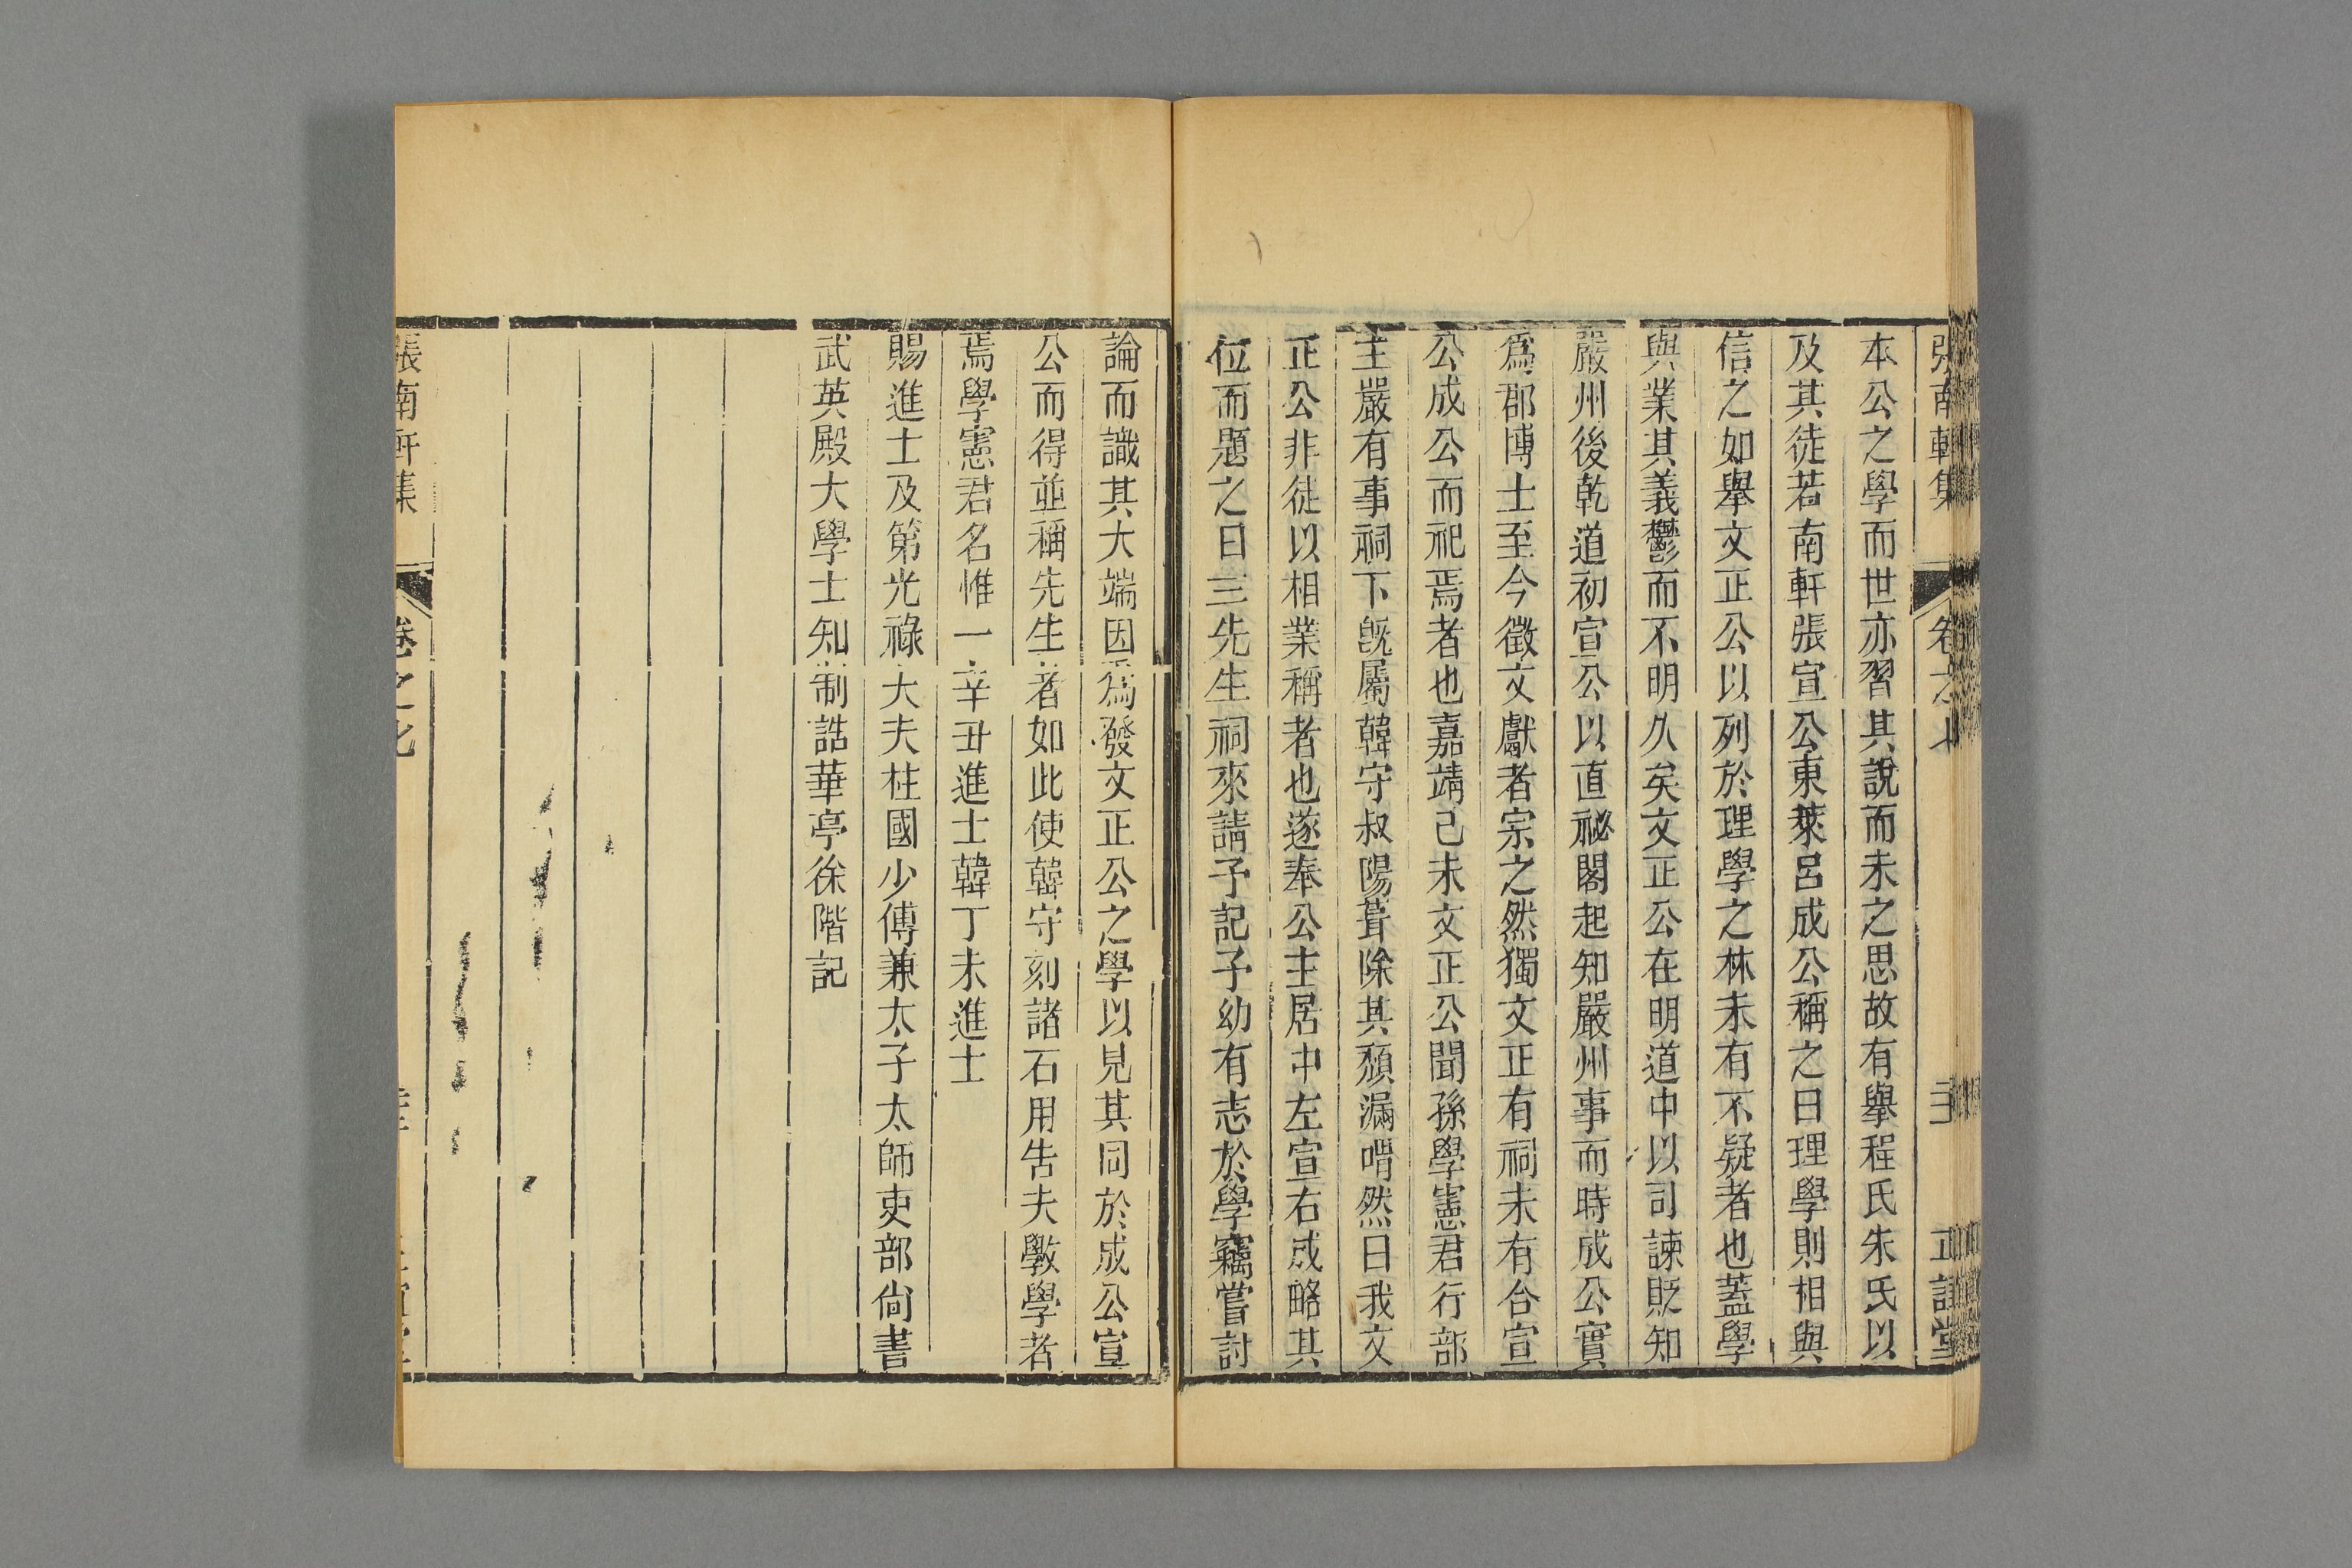 張南軒集 卷之七 正誼堂
本公之學而世亦習其說而未之思故有舉程氏朱氏以
及其徒若南軒張宣公東萊呂成公稱之曰理學則相與
信之如舉文正公以列於理學之林未有不疑者也蓋學
與業其義鬱而不明久矣文正公在明道中以司諫貶知
嚴州後乾道初宣公以直祕閣起知嚴州事而時成公實
爲郡博士至今徵文獻者宗之然獨文正有祠未有合宣
公成公而祀焉者也嘉靖己未文正公聞孫學憲君行部
至嚴有事祠下旣屬韓守叔陽葺除其頹漏喟然曰我文
正公非徒以相業稱者也遂奉公主居中左宣右成略其
位而題之曰三先生祠來請予記予幼有志於學竊嘗討
論而識其大端因爲發文正公之學以見其同於成公宣
公而得並稱先生者如此使韓守刻諸石用告夫斆學者
焉學憲君名惟一辛丑進士韓丁未進士
賜進士及第光祿大夫柱國少傅兼太子太師吏部尙書
武英殿大學士知制誥華亭徐階記
張南軒集 卷之七